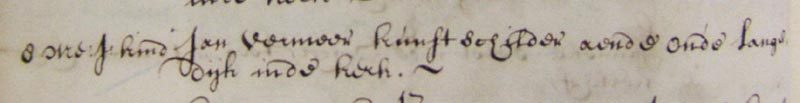 8 me: j. kind Jan vermeer kunstschilder aende oude lange
dijk inde kerk.